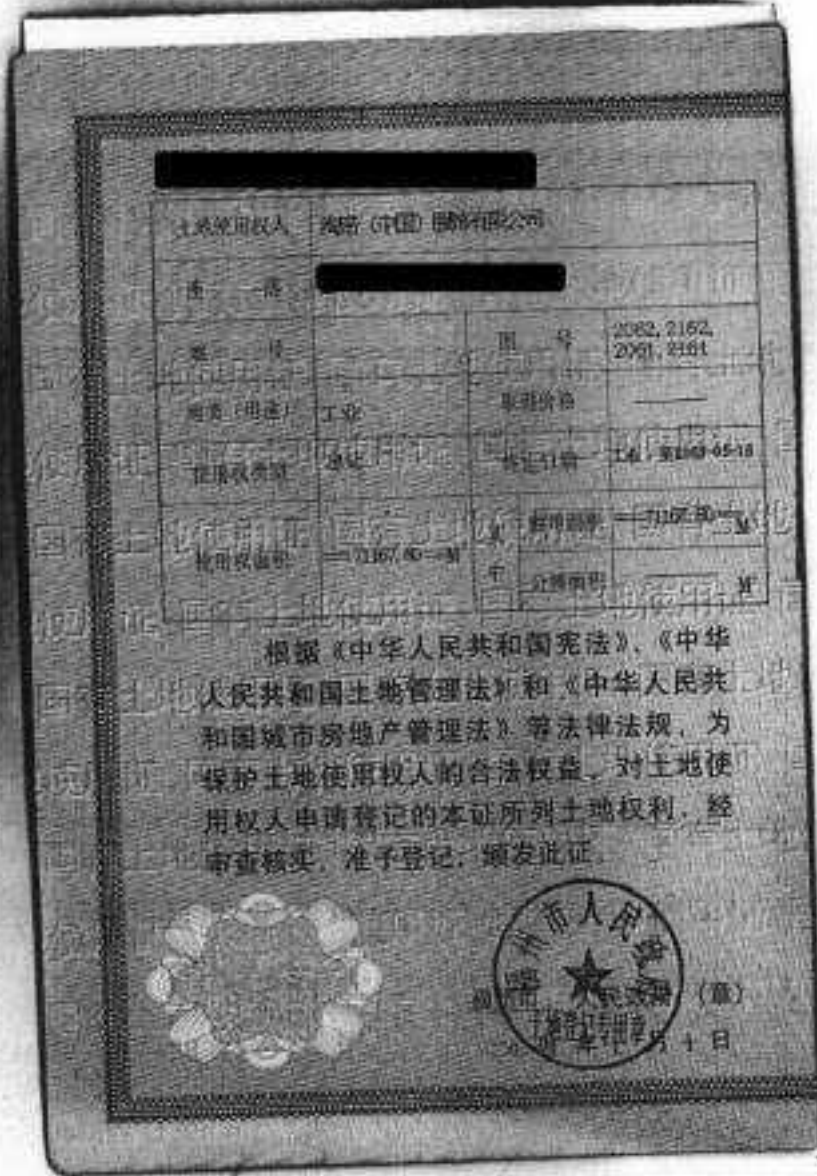 土地使用权人
(中国) 有限公司
座 落
地 号
图 号
2062, 2162,
2061, 2161
地类(用途)
工业
取得价格
使用权类型
终止日期
使用权面积
71167.80 M²
其
中
独用面积
71167.80 M²
分摊面积
M²
根据《中华人民共和国宪法》、《中华
人民共和国土地管理法》和《中华人民共
和国城市房地产管理法》等法律法规,为
保护土地使用权人的合法权益,对土地使
用权人申请登记的本证所列土地权利,经
审查核实,准予登记,颁发此证。
州市人民政府
土地登记专用章
(章)
月 1 日